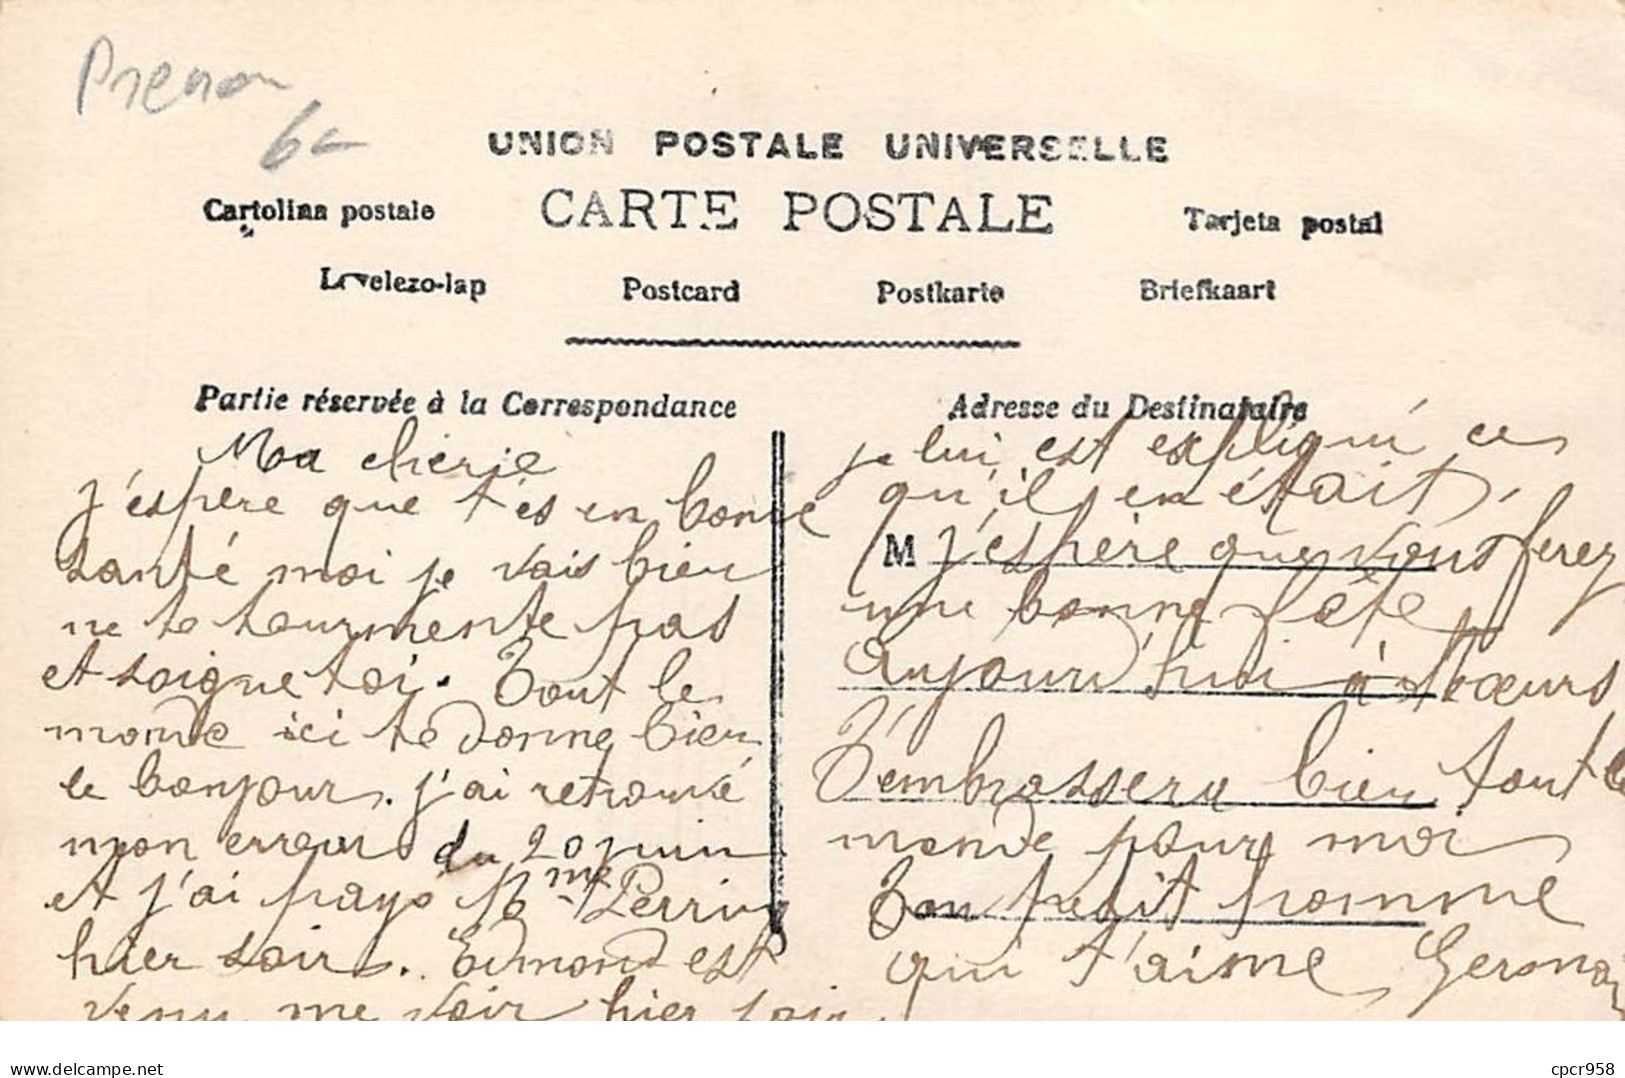 Prenom
6-
UNION POSTALE UNIVERSELLE
Cartolina postale CARTE POSTALE Tarjeta postal
Levelezo-lap Postcard Postkarte Briefkaart
Partie réservée à la Correspondance
Ma chérie
j'espere que t'es en bonne
santé moi je vais bien
ne te tourmente pas
et soigne toi. Tout le
monde ici te donne bien
le bonjour. j'ai retrouvé
mon erreur du 20 juin
et j'ai payé Mme Perrin
hier soir. Edmond est
venu me voir hier soir
Adresse du Destinataire
je lui est expliqué ce
qu'il en était,
M j'espère que vous ferez
une bonne fête
aujourd'hui à
T'embrassera bien tout le
monde pour moi
Ton petit homme
qui t'aime Germain
www.delcampe.net
cpcr958